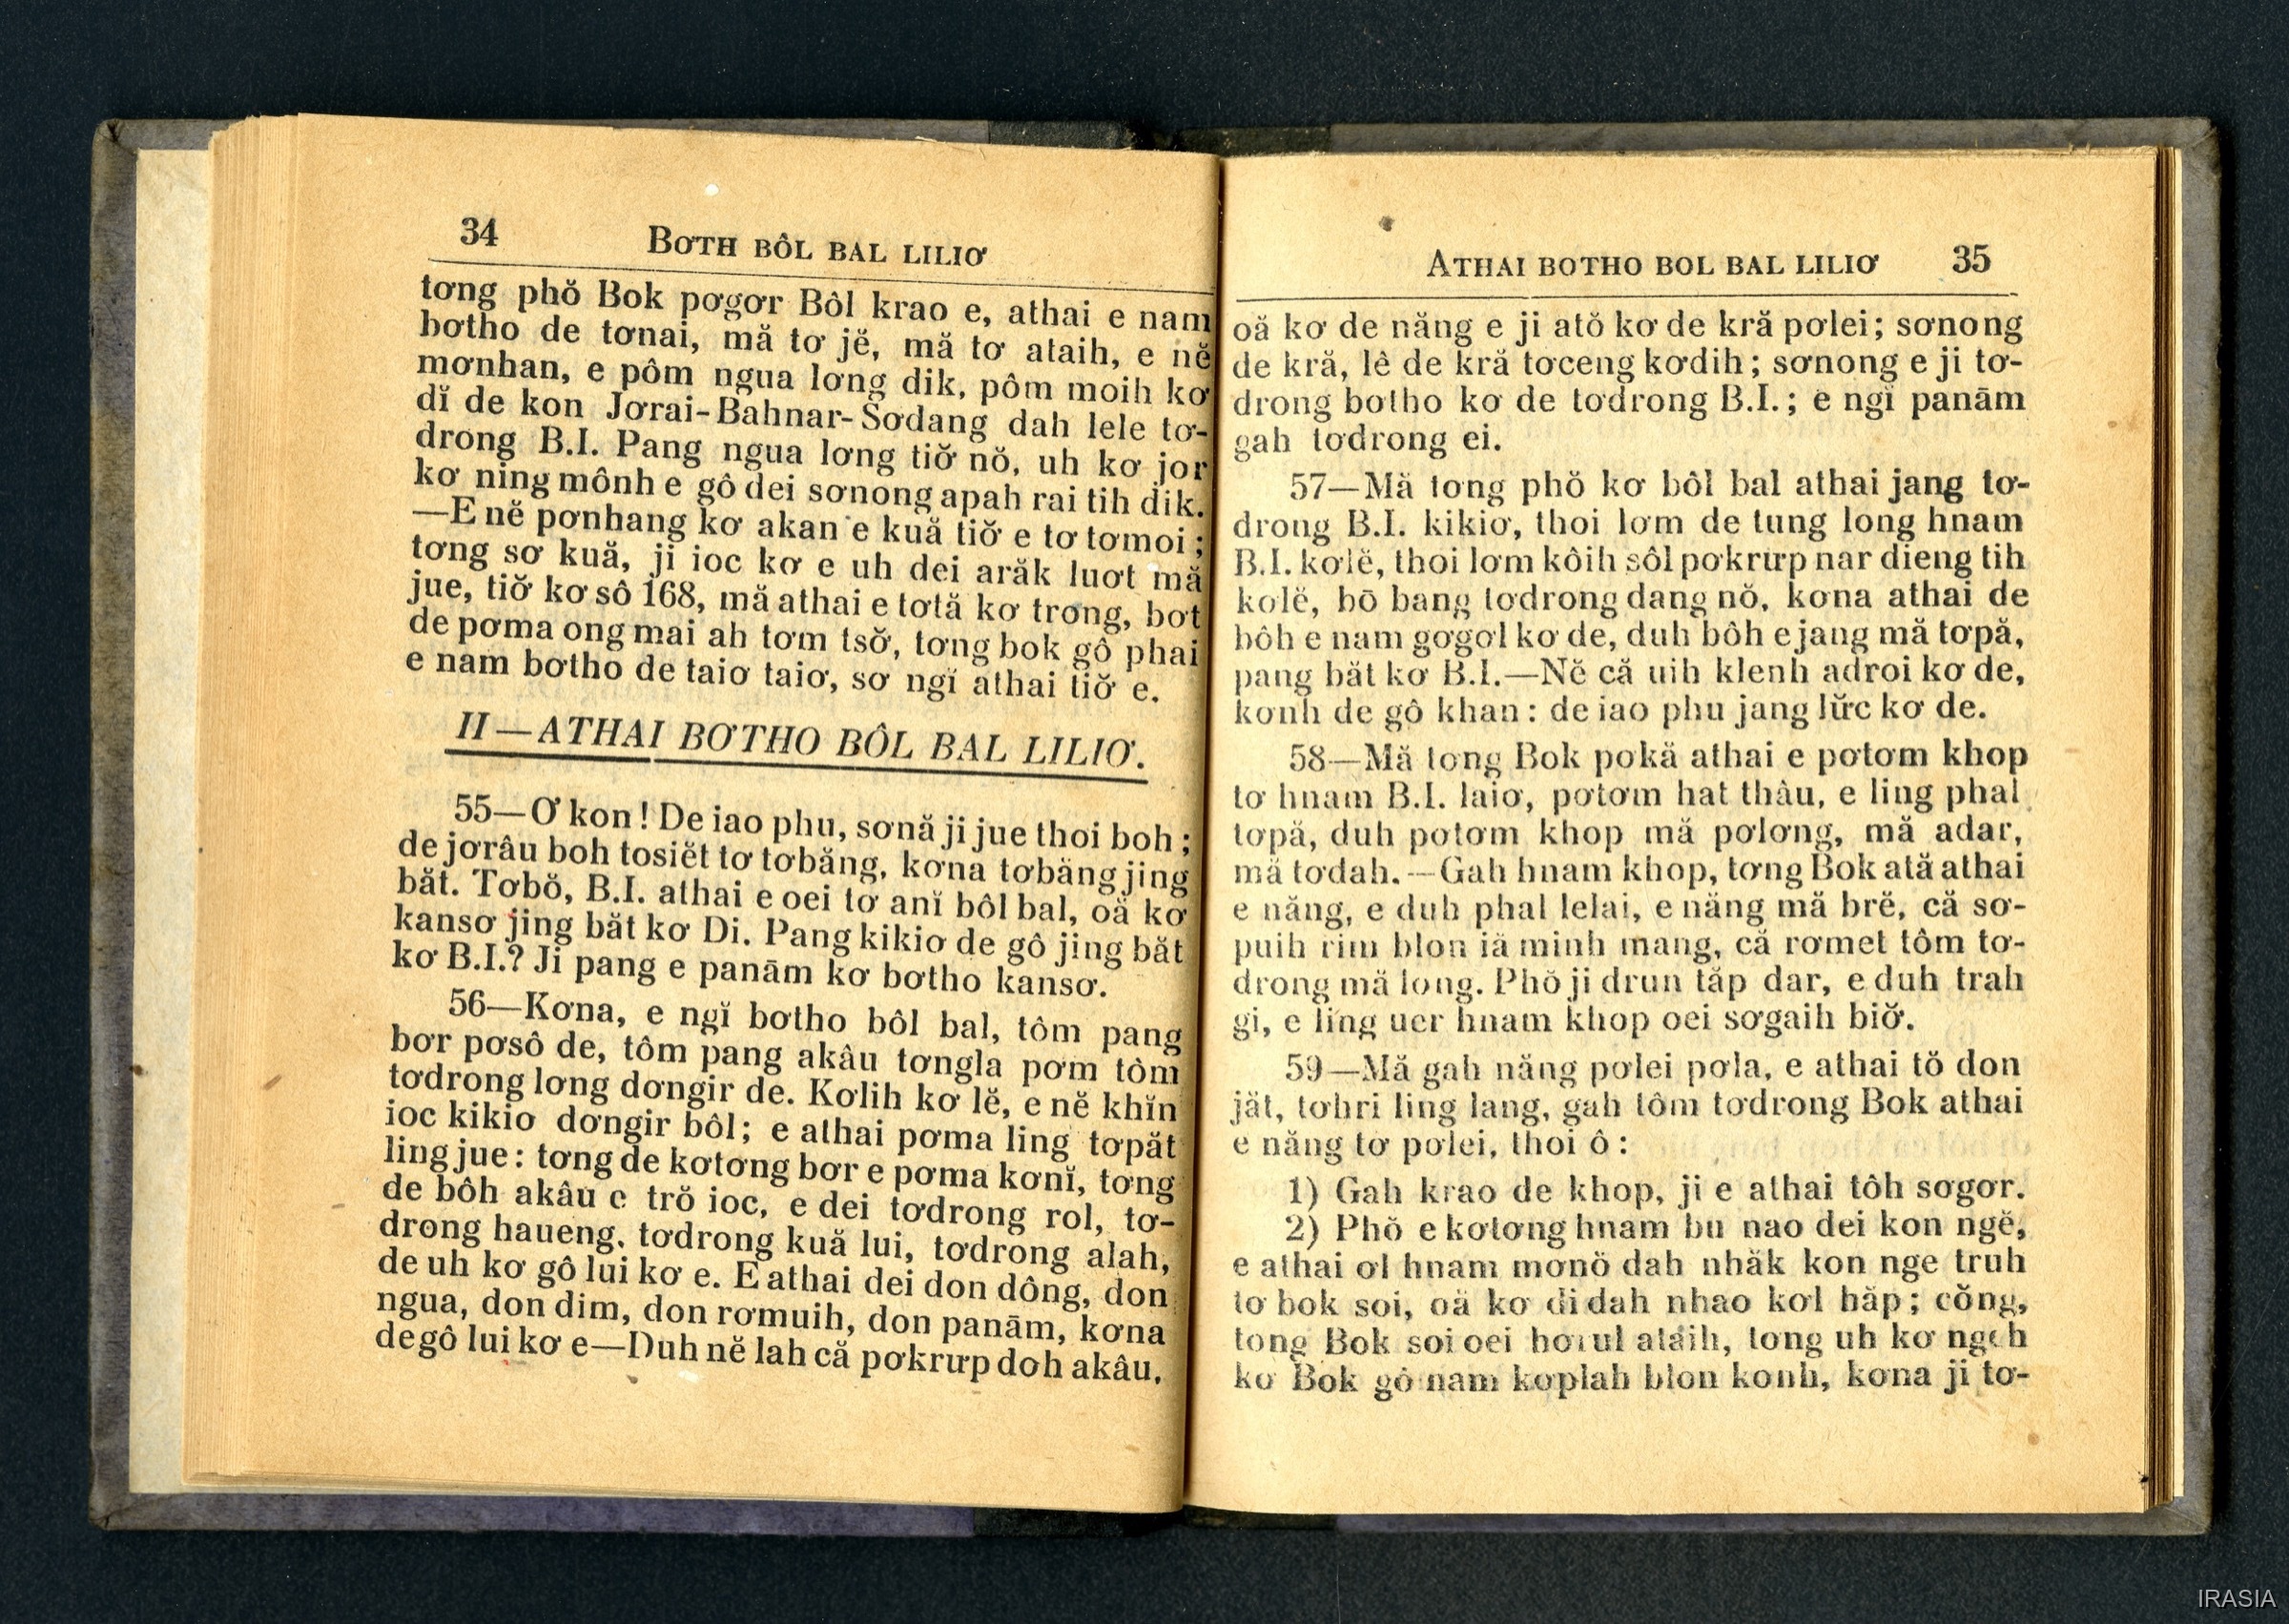 34 BƠTH BÔL BAL LILIƠ
tơng phŏ Bok pơgơr Bôl krao e, athai e nam
bơtho de tơnai, mă tơ jĕ, mă tơ ataih, e nĕ
mơnhan, e pôm ngua lơng dik, pôm moih kơ
dĭ de kon Jơrai-Bahnar-Sơdang dah lele tơ-
drong B.I. Pang ngua lơng tiơ̆ nŏ, uh kơ jor
kơ ning mônh e gô dei sơnong apah rai tih dik.
—E nĕ pơnhang kơ akan e kuă tiơ̆ e tơ tơmoi ;
tơng sơ kuă, ji ioc kơ e uh dei arăk luơt mă
jue, tiơ̆ kơ sô 168, mă athai e tơtă kơ trong, bơt
de pơma ong mai ah tơm tsơ̆, tơng bok gô phai
e nam bơtho de taiơ taiơ, sơ ngĭ athai tiơ̆ e.
II—ATHAI BƠTHO BÔL BAL LILIƠ.
55—Ơ kon ! De iao phu, sơnă ji jue thoi boh ;
de jơrâu boh tosiĕt tơ tơbăng, kơna tơbăng jing
băt. Tơbŏ, B.I. athai e oei tơ anĭ bôl bal, oă kơ
kansơ jing băt kơ Di. Pang kikiơ de gô jing băt
kơ B.I.? Ji pang e panām kơ bơtho kansơ.
56—Kơna, e ngĭ bơtho bôl bal, tôm pang
bơr pơsô de, tôm pang akâu tơngla pơm tôm
tơdrong lơng dơngir de. Kơlih kơ lĕ, e nĕ khĭn
ioc kikiơ dơngir bôl; e athai pơma ling tơpăt
ling jue: tơng de kơtơng bơr e pơma kơnĭ, tơng
de bôh akâu e trŏ ioc, e dei tơdrong rol, tơ-
drong haueng, tơdrong kuă lui, tơdrong alah,
de uh kơ gô lui kơ e. E athai dei don dông, don
ngua, don dim, don rơmuih, don panām, kơna
de gô lui kơ e—Duh nĕ lah că pơkrưp doh akâu,
ATHAI BOTHO BOL BAL LILIƠ 35
oă kơ de năng e ji atŏ kơ de kră pơlei; sơnong
de kră, lê de kră tơceng kơdih; sơnong e ji tơ-
drong botho kơ de tơdrong B.I.; e ngĭ panām
gah tơdrong ei.
57—Mă tơng phŏ kơ bôl bal athai jang tơ-
drong B.I. kikiơ, thoi lơm de tung long hnam
B.I. kơlĕ, thoi lơm kôih sôl pơkrưp nar dieng tih
kơlĕ, bō bang tơdrong dang nŏ, kơna athai de
bôh e nam gơgơl kơ de, duh bôh e jang mă tơpă,
pang băt kơ B.I.—Nĕ că uih klenh adroi kơ de,
kơnh de gô khan : de iao phu jang lư̆c kơ de.
58—Mă tơng Bok pơkă athai e pơtơm khop
tơ hnam B.I. laiơ, pơtơm hat thâu, e ling phal
tơpă, duh pơtơm khop mă pơlơng, mă adar,
mă tơdah.—Gah hnam khop, tơng Bok ată athai
e năng, e duh phal lelai, e năng mă brĕ, că sơ-
puih rim blon iă minh mang, că rơmet tôm tơ-
drong mă long. Phŏ ji drun tăp dar, e duh trah
gi, e ling uer hnam khop oei sơgaih biơ̆.
59—Mă gah năng pơlei pơla, e athai tŏ don
jăt, tơhri ling lang, gah tôm tơdrong Bok athai
e năng tơ pơlei, thoi ô :
1) Gah krao de khop, ji e athai tôh sơgơr.
2) Phŏ e kơtơng hnam bu nao dei kon ngĕ,
e athai ơl hnam mơnŏ dah nhăk kon nge truh
tơ bok soi, oă kơ di dah nhao kơl hăp; cŏng,
tong Bok soi oei hơtul ataih, tong uh kơ ngeh
kơ Bok gô nam kơplah blon konh, kơna ji tơ-
IRASIA